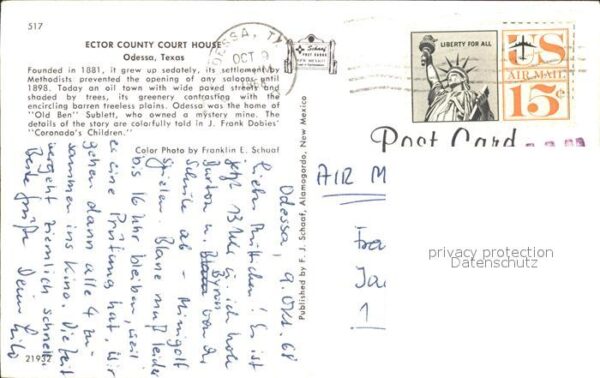 517
ECTOR COUNTY COURT HOUSE
Odessa, Texas
Founded in 1881, it grew up sedately, its settlement by
Methodists prevented the opening of any saloons until
1898. Today an oil town with wide paved streets and
shaded by trees, its greenery contrasting with the
encircling barren treeless plains. Odessa was the home of
"Old Ben" Sublett, who owned a mystery mine. The
details of the story are colorfully told in J. Frank Dobies'
"Coronado's Children."
Color Photo by Franklin E. Schaaf
21932
Odessa, 9. Okt. 68
Liebes Muttichen! Es ist
jetzt 13 Uhr u. ich hole
Burton u. Byron von der
Schule ab - Minigolf
spielen. Blane muß leider
bis 16 Uhr bleiben, weil
er eine Prüfung hat. Wir
gehen dann alle 4 zu-
sammen ins Kino. Die Zeit
vergeht ziemlich schnell.
Beste Grüße Deine
Published by F. J. Schaaf, Alamogordo, New Mexico
Schaaf
POST CARDS
NEW MEXICO
ODESSA, TX
OCT 9
LIBERTY FOR ALL
US
AIR MAIL
15¢
Post Card
AIR M
Fra
Ja
1
privacy protection
Datenschutz